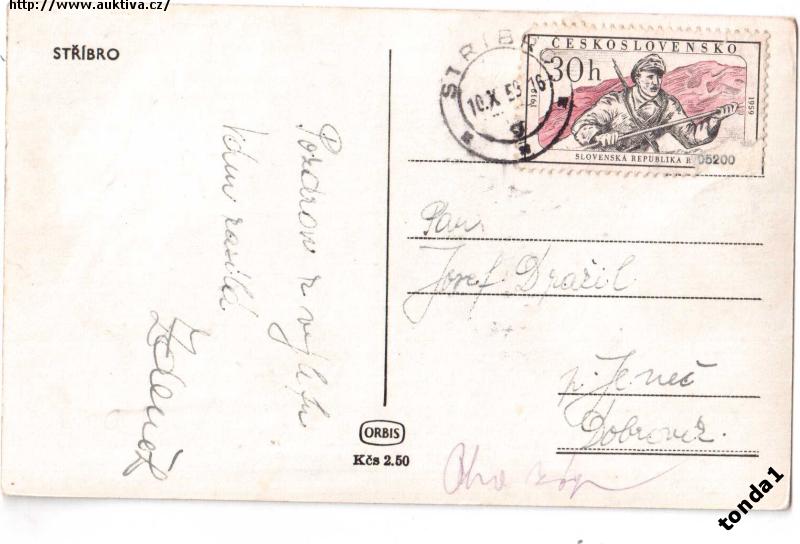 http://www.auktiva.cz/
STŘÍBRO
Pozdrav z výletu
Vám zasílá
Zdeněk
ORBIS
Kčs 2.50
STŘÍBRO
10.X.59-16
ČESKOSLOVENSKO
30h
1919
1959
SLOVENSKÁ REPUBLIKA R
05200
Pan
Josef Dražil
p. Jeneč
Dobrovíz
tonda1